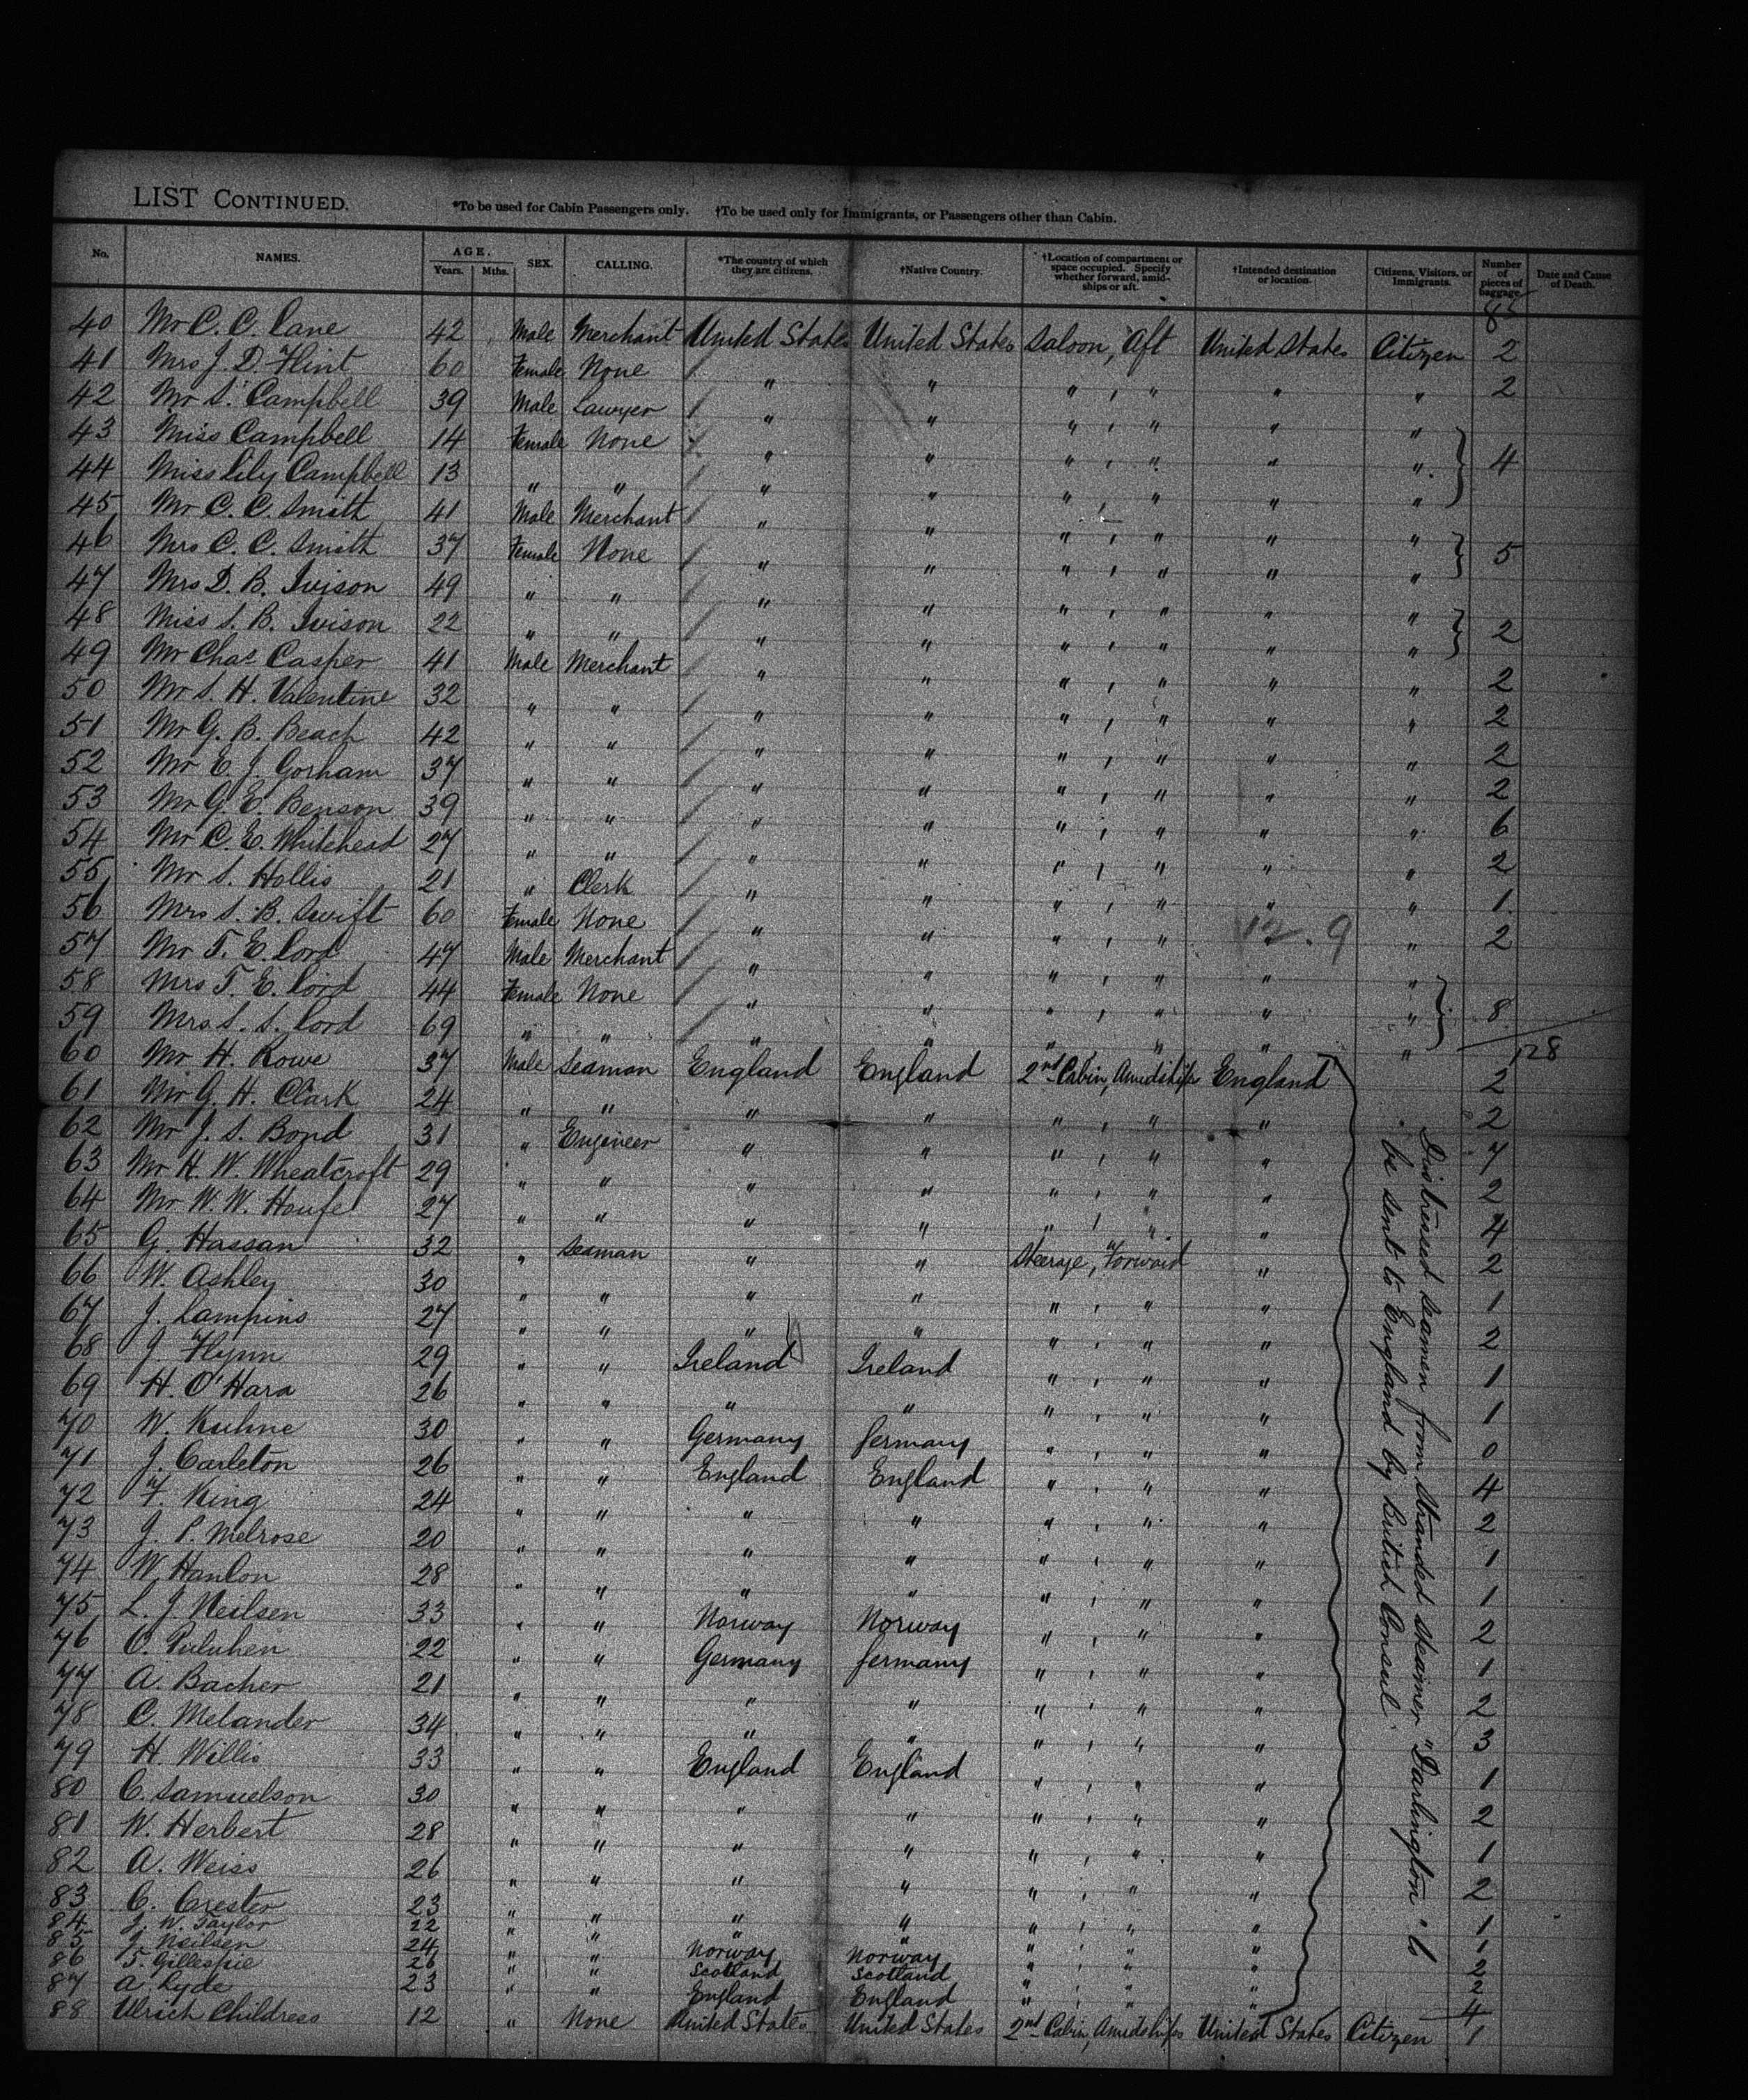 LIST CONTINUED. *To be used for Cabin Passengers only. †To be used only for Immigrants, or Passengers other than Cabin.
No. NAMES. AGE. Years. Mths. SEX. CALLING. *The country of which they are citizens. †Native Country. †Location of compartment or space occupied. Specify whether forward, amidships or aft. †Intended destination or location. Citizens, Visitors, or Immigrants. Number of pieces of baggage. Date and Cause of Death.
85
40 Mr C. C. Lane 42 Male Merchant United States United States Saloon, Aft United States Citizen 2
41 Mrs J. D. Flint 60 Female None " " " , " " " 2
42 Mr S. Campbell 39 Male Lawyer " " " , " " "
43 Miss Campbell 14 Female None " " " , " " " 4
44 Miss Lily Campbell 13 " " " " " , " " "
45 Mr C. C. Smith 41 Male Merchant " " " , " " "
46 Mrs C. C. Smith 37 Female None " " " , " " " 5
47 Mrs D. B. Ivison 49 " " " " " , " " "
48 Miss S. B. Ivison 22 " " " " " , " " " 2
49 Mr Chas Casper 41 Male Merchant " " " , " " " 2
50 Mr S. H. Valentine 32 " " " " " , " " " 2
51 Mr G. B. Beach 42 " " " " " , " " " 2
52 Mr E. J. Gorham 37 " " " " " , " " " 2
53 Mr G. E. Benson 39 " " " " " , " " " 6
54 Mr C. E. Whitehead 27 " " " " " , " " " 2
55 Mr S. Hollis 21 " Clerk " " " , " " " 1
56 Mrs S. B. Swift 60 Female None " " " , " " " 2
12.9
57 Mr T. E. Lord 47 Male Merchant " " " , " " "
58 Mrs T. E. Lord 44 Female None " " " , " " " 8
59 Mrs S. S. Lord 69 " " " " " , " " "
128
60 Mr H. Rowe 37 Male Seaman England England 2nd Cabin, Amidships England 2
61 Mr G. H. Clark 24 " " " " " , " " 2
62 Mr J. S. Bond 31 " Engineer " " " , " " 7
63 Mr H. W. Wheatcroft 29 " " " " " , " " 2
64 Mr W. W. Houfe 27 " " " " " , " " 4
65 G. Hassan 32 " Seaman " " Steerage, Forward " 2
66 W. Ashley 30 " " " " " , " " 1
67 J. Lampins 27 " " " " " , " " 2
68 J. Flynn 29 " " Ireland Ireland " , " " 1
69 H. O'Hara 26 " " " " " , " " 1
70 W. Kuhne 30 " " Germany Germany " , " " 0
71 J. Carleton 26 " " England England " , " " 4
72 F. King 24 " " " " " , " " 2
73 J. P. Melrose 20 " " " " " , " " 1
74 W. Hanlon 28 " " " " " , " " 1
75 L. J. Neilsen 33 " " Norway Norway " , " " 2
76 C. 22 " " Germany Germany " , " " 1
77 A. Bacher 21 " " " " " , " " 2
78 C. Melander 34 " " " " " , " " 3
79 H. Willis 33 " " England England " , " " 1
80 C. Samuelson 30 " " " " " , " " 2
81 W. Herbert 28 " " " " " , " " 1
82 A. Weiss 26 " " " " " , " " 2
83 C. Crester 23 " " " " " , " " 1
84 J. W. Taylor 22 " " " " " , " " 1
85 J. Neilsen 24 " " Norway Norway " , " " 2
86 T. Gillespie 26 " " Scotland Scotland " , " " 2
87 A. Lyde 23 " " England England " , " " 4
88 Ulrich Childress 12 " None United States United States 2nd Cabin, Amidships United States Citizen 1
Distressed seamen from stranded steamer "Darlington" to
be sent to England by British Consul.